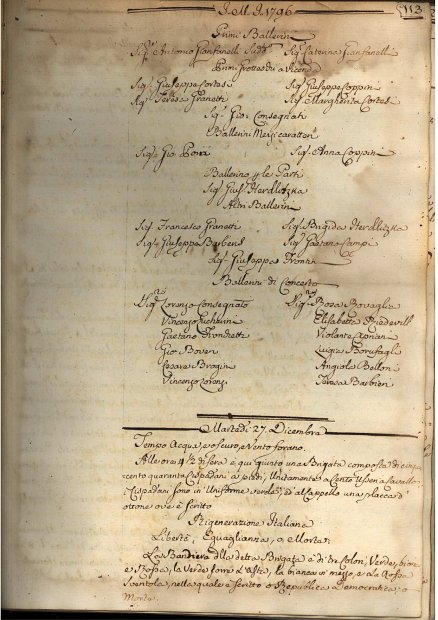 J. M. J. 1796
113
Primi Ballerini
Sigr. Antonio Gianfanelli Sudo. Siga. Caterina Gianfanelli
Primi Grotteschi a Vicenda
Sigr. Giuseppa Cortesi Sigr. Giuseppe Coppini
Siga. Teresa Granetti Siga. Margherita Cortesi
Sigr. Gio: Consegnati
Ballerini Mezzi caratteri
Sigr. Gio Siga. Anna Coppini
Ballerino p le Parti
Sigr. Gius. Herdlitzka
Altri Ballerini
Sigr. Francesco Granetti Siga. Brigida Herdlitzka
Sigr. Giuseppe Barbensi Sigr. Gaetano Campi
Sigr. Giuseppe
Ballerini di Concerto
Sigri. Lorenzo Consegnato Sigre. Rosa Bovaglia
Vincenzo Elisabetta
Gaetano Violante
Gio Boveri Luigia
Cesare Brogini Angiola Belloni
Vincenzo Lorenzi Teresa Barbieri
Martedì 27. Dicembra
Tempo Acqua, e oscuro, e Vento forano.
Alle ore 4 1/2 di sera è qui giunto una Brigata composta di cinque
cento quaranta Cispadani a piedi, Unitamente a Cento Usseri a Cavallo.
I Cispadani sono in Uniforme verde, ed al Cappello una placca d'
ottone ove è scritto
Rigenerazione Italiana
Libertà, Eguaglianza, o Morte.
La Bandiera della detta Brigata è di tre Colori, Verde, bianco
e Rossa, la Verde l'Aste, la bianca in mezzo, e la Rossa
Sventola, nella quale è scritto o Republica Democratica, o
Morte.